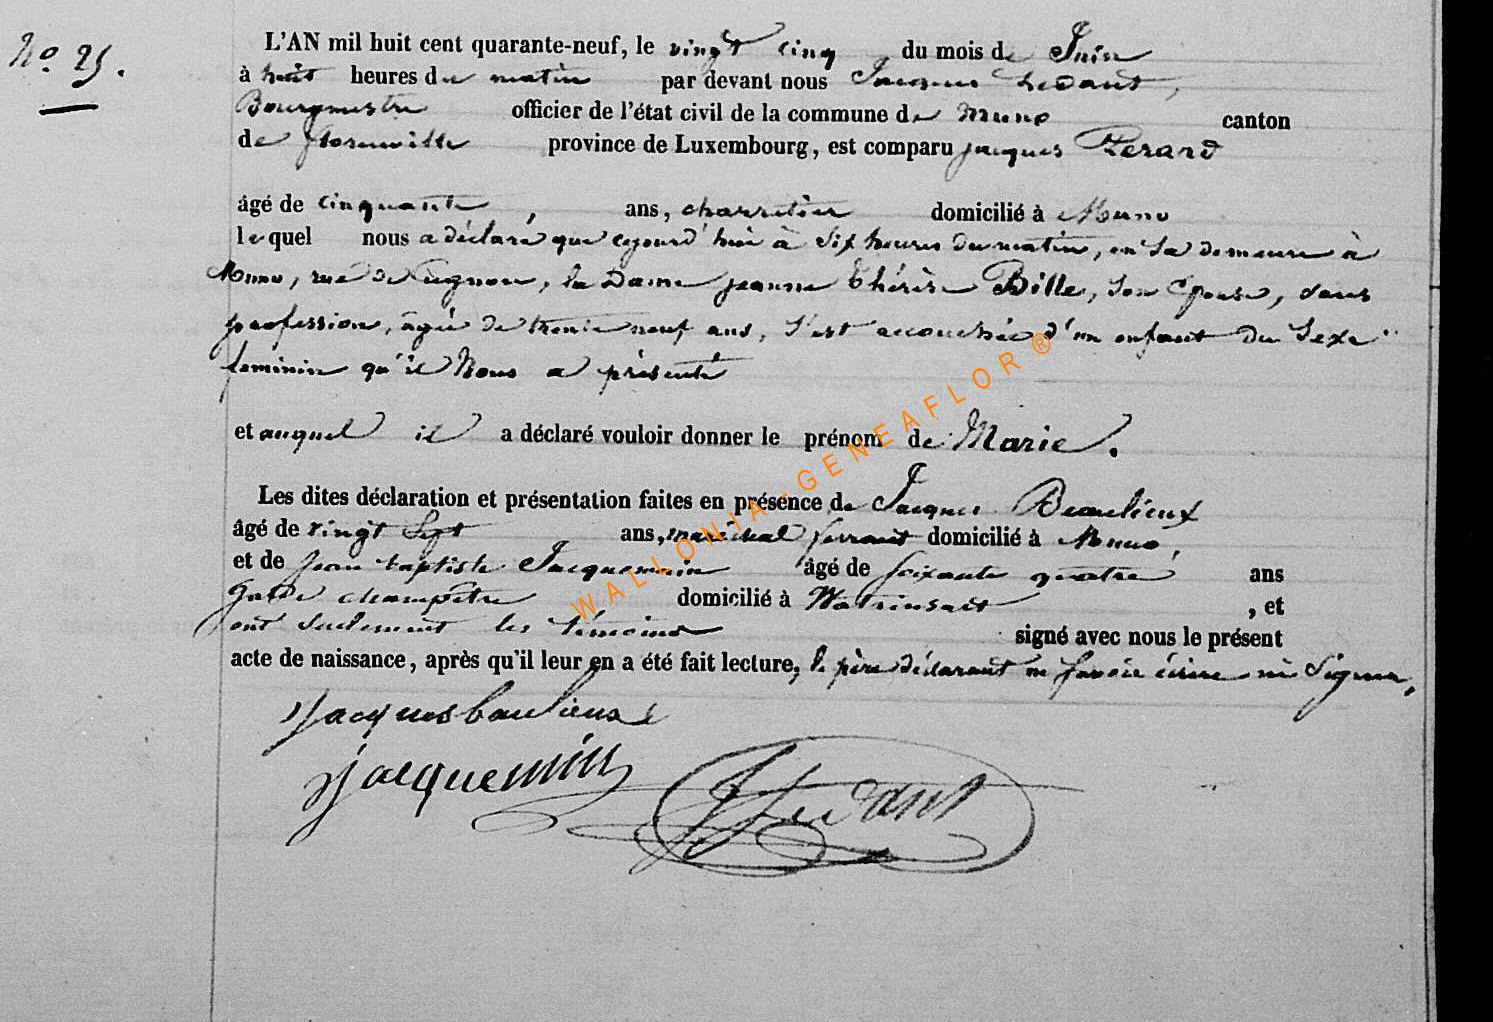 No. 25.
L'AN mil huit cent quarante-neuf, le vingt cinq du mois de Juin
à huit heures du matin par devant nous Jacques Ledant,
Bourgmestre officier de l'état civil de la commune de Muno canton
de florenville province de Luxembourg, est comparu jacques Perard
âgé de cinquante, ans, charretier domicilié à Muno
lequel nous a déclaré que cejourd'hui à six heures du matin, en sa demeure à
Muno, rue de Cugnon, la Dame jeanne thérèse Bille, son Epouse, sans
profession, âgée de trente neuf ans, s'est accouchée d'un enfant du sexe
féminin qu'il Nous a présenté
et auquel il a déclaré vouloir donner le prénom de Marie.
Les dites déclaration et présentation faites en présence de Jacques Beaulieux
âgé de vingt sept ans, maréchal ferrant domicilié à Muno,
et de jean baptiste Jacquemin âgé de soixante quatre ans
garde champêtre domicilié à Watrinsart, et
ont seulement les témoins signé avec nous le présent
acte de naissance, après qu'il leur en a été fait lecture, le père déclarant ne savoir écrire ni signer.
Jacques baulieux
Jacquemin
J Ledant
WALLONIA-GENEAFLOR®